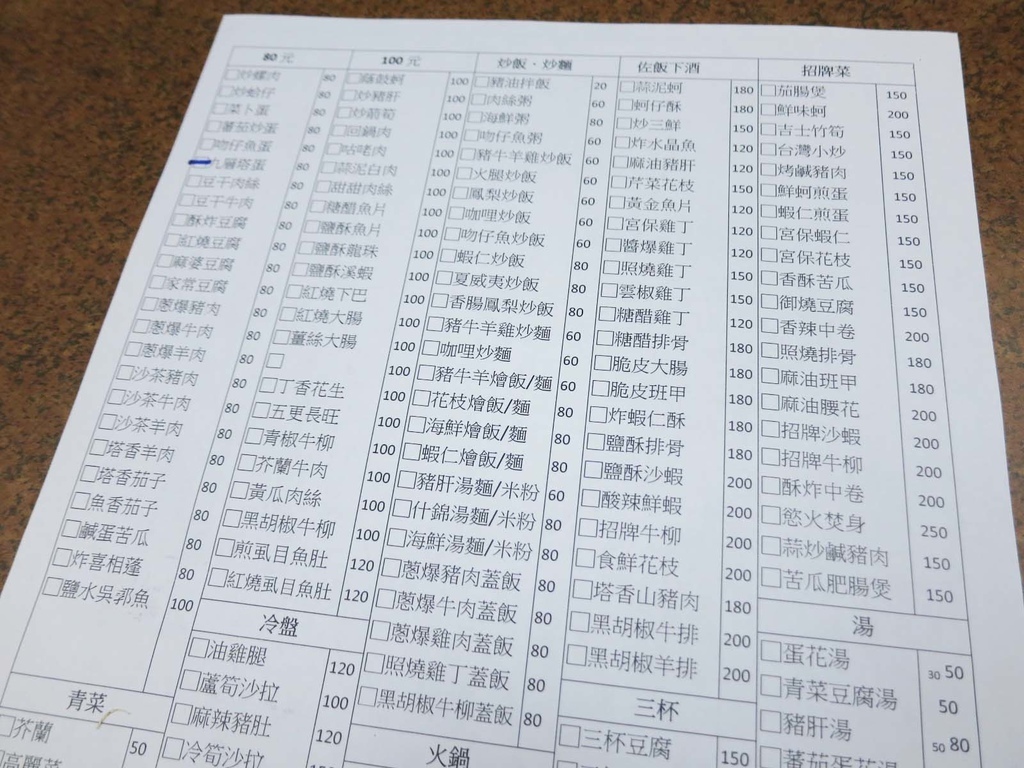 80元
□炒螺肉 80
□炒蛤仔 80
□菜卜蛋 80
□蕃茄炒蛋 80
□吻仔魚蛋 80
□九層塔蛋 80
□豆干肉絲 80
□豆干牛肉 80
□酥炸豆腐 80
□紅燒豆腐 80
□麻婆豆腐 80
□家常豆腐 80
□蔥爆豬肉 80
□蔥爆牛肉 80
□蔥爆羊肉 80
□沙茶豬肉 80
□沙茶牛肉 80
□沙茶羊肉 80
□塔香羊肉 80
□塔香茄子 80
□魚香茄子 80
□鹹蛋苦瓜 80
□炸喜相蓬 80
□鹽水吳郭魚 100
青菜
□芥蘭 50
□高麗菜
100元
□蔭豉蚵 100
□炒豬肝 100
□炒箭筍 100
□回鍋肉 100
□咕咾肉 100
□蒜泥白肉 100
□甜甜肉絲 100
□糖醋魚片 100
□鹽酥魚片 100
□鹽酥龍珠 100
□鹽酥溪蝦 100
□紅燒下巴 100
□紅燒大腸 100
□薑絲大腸 100
□
□丁香花生 100
□五更長旺 100
□青椒牛柳 100
□芥蘭牛肉 100
□黃瓜肉絲 100
□黑胡椒牛柳 100
□煎虱目魚肚 120
□紅燒虱目魚肚 120
冷盤
□油雞腿 120
□蘆筍沙拉 100
□麻辣豬肚 120
□冷筍沙拉
炒飯．炒麵
□豬油拌飯 20
□肉絲粥 60
□海鮮粥 80
□吻仔魚粥 60
□豬牛羊雞炒飯 60
□火腿炒飯 60
□鳳梨炒飯 60
□咖哩炒飯 60
□吻仔魚炒飯 60
□蝦仁炒飯 80
□夏威夷炒飯 80
□香腸鳳梨炒飯 80
□豬牛羊雞炒麵 60
□咖哩炒麵 60
□豬牛羊燴飯/麵 60
□花枝燴飯/麵 80
□海鮮燴飯/麵 80
□蝦仁燴飯/麵 80
□豬肝湯麵/米粉 60
□什錦湯麵/米粉 80
□海鮮湯麵/米粉 80
□蔥爆豬肉蓋飯 80
□蔥爆牛肉蓋飯 80
□蔥爆雞肉蓋飯 80
□照燒雞丁蓋飯 80
□黑胡椒牛柳蓋飯 80
火鍋
佐飯下酒
□蒜泥蚵 180
□蚵仔酥 180
□炒三鮮 150
□炸水晶魚 120
□麻油豬肝 120
□芹菜花枝 150
□黃金魚片 120
□宮保雞丁 120
□醬爆雞丁 120
□照燒雞丁 150
□雲椒雞丁 150
□糖醋雞丁 120
□糖醋排骨 180
□脆皮大腸 180
□脆皮班甲 180
□炸蝦仁酥 180
□鹽酥排骨 180
□鹽酥沙蝦 180
□酸辣鮮蝦 200
□招牌牛柳 200
□食鮮花枝 200
□塔香山豬肉 180
□黑胡椒牛排 200
□黑胡椒羊排 200
三杯
□三杯豆腐 150
招牌菜
□茄腸煲 150
□鮮味蚵 200
□吉士竹筍 150
□台灣小炒 150
□烤鹹豬肉 150
□鮮蚵煎蛋 150
□蝦仁煎蛋 150
□宮保蝦仁 150
□宮保花枝 150
□香酥苦瓜 150
□御燒豆腐 150
□香辣中卷 200
□照燒排骨 180
□麻油班甲 180
□麻油腰花 200
□招牌沙蝦 200
□招牌牛柳 200
□酥炸中卷 200
□慾火焚身 250
□蒜炒鹹豬肉 150
□苦瓜肥腸煲 150
湯
□蛋花湯 30 50
□青菜豆腐湯 50
□豬肝湯 50 80
□蕃茄蛋花湯